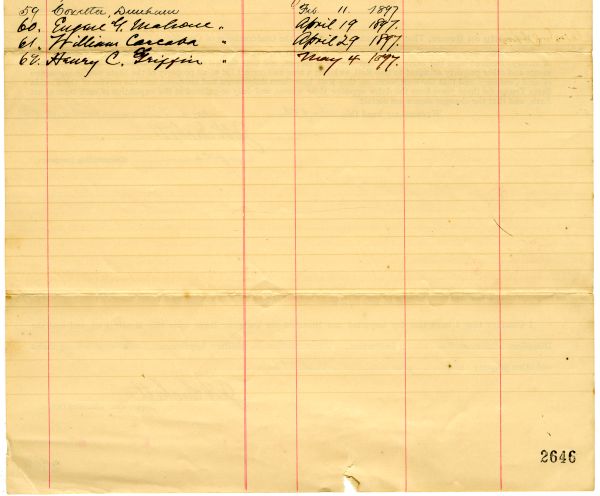 59 Coxetter, Dunham Feb. 11. 1897
60. Eugene G. Malone „ April 19 1897.
61. William Carcaba „ April 29 1897.
62. Henry C. Griffin „ May 4 1897.
2646